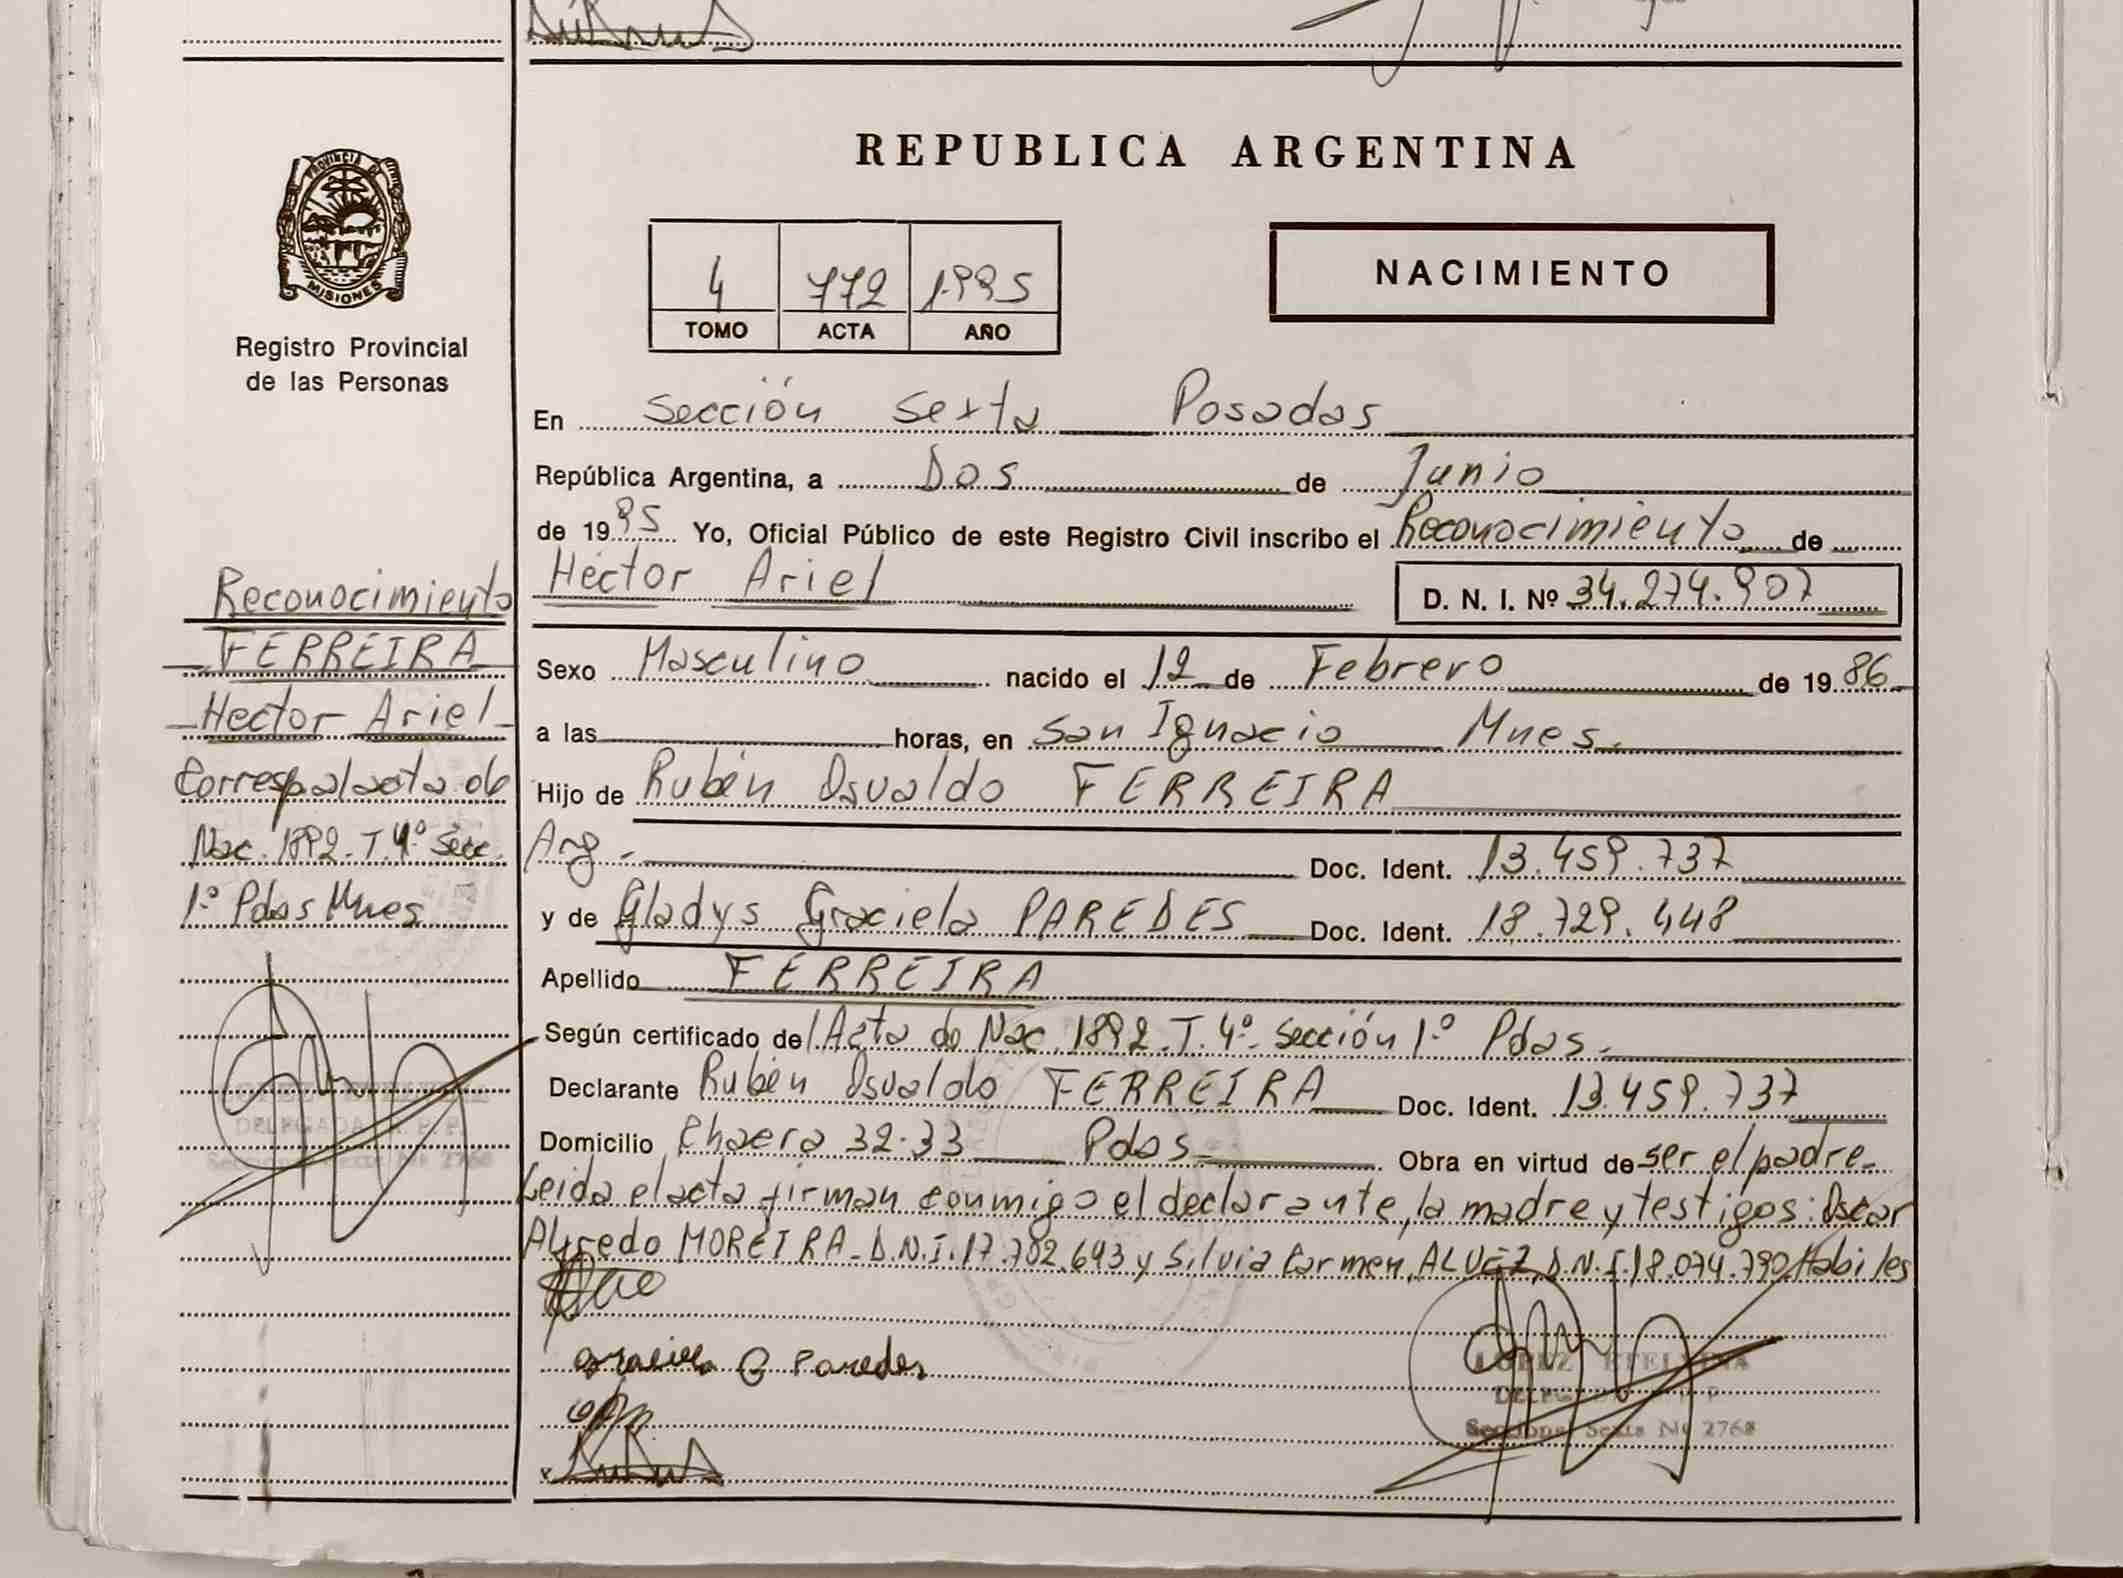 REPUBLICA ARGENTINA
PROVINCIA DE
MISIONES
Registro Provincial
de las Personas
4 772 1.995
TOMO ACTA AÑO
NACIMIENTO
En Sección Sexta Posadas
República Argentina, a Dos de Junio
de 1995 Yo, Oficial Público de este Registro Civil inscribo el Reconocimiento de
Héctor Ariel D. N. I. Nº 34.274.907
Sexo Masculino nacido el 12 de Febrero de 1986
a las horas, en San Ignacio Mnes.
Hijo de Rubén Osvaldo FERREIRA
Arg. Doc. Ident. 13.459.737
y de Gladys Graciela PAREDES Doc. Ident. 18.729.448
Apellido FERREIRA
Según certificado del Acta de Nac. 1892. T. 4º. Sección 1º Pdas.
Declarante Rubén Osvaldo FERREIRA Doc. Ident. 13.459.737
Domicilio Chacra 32-33 Pdas. Obra en virtud de ser el padre.
Leida el acta firman conmigo el declarante, la madre y testigos: Oscar
Alfredo MOREIRA. D.N.I. 17.782.643 y Silvia Carmen ALVEZ D.N.I. 18.074.790 Habiles
Graciela G Paredes
LOPEZ ETELVINA
Seccional Sexta Nº 2768
Reconocimiento
FERREIRA
Hector Ariel
Corresp al acta de
Nac. 1892 - T. 4º Secc.
1º Pdas Mnes
DELEGADA R. P. P.
Seccional Sexta Nº 2768